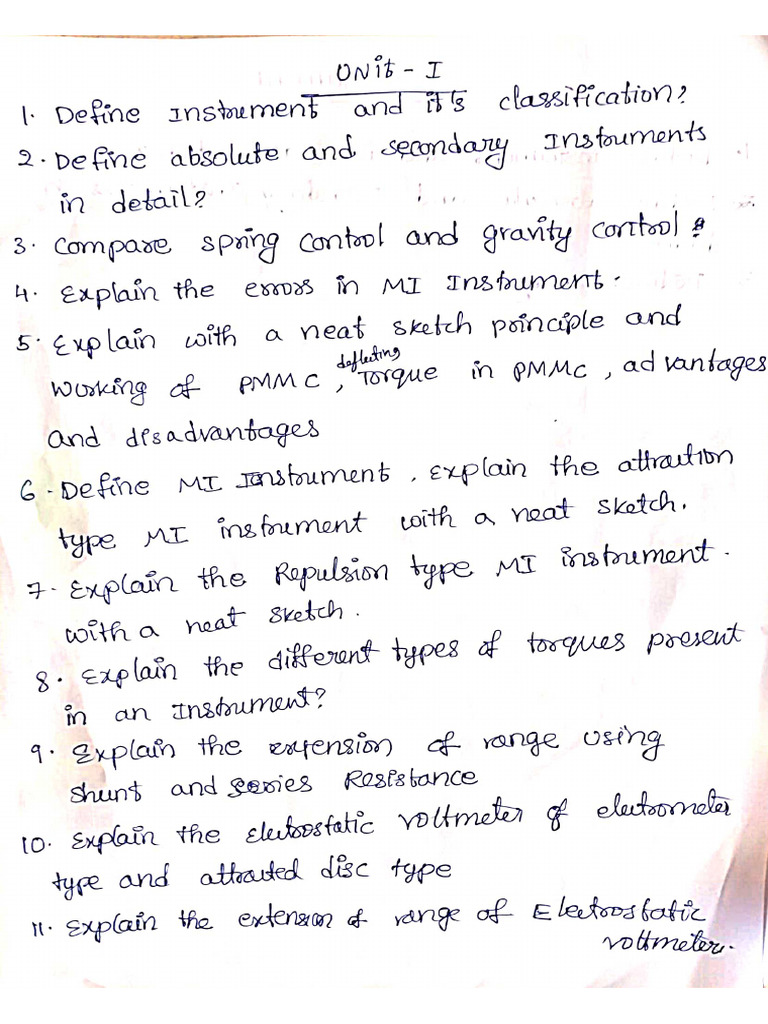 UNit - I
1. Define Instrument and it's classification?
2. Define absolute and secondary Instruments
in detail?
3. Compare spring control and gravity control?
4. Explain the errors in MI Instrument.
5. Explain with a neat sketch principle and
working of PMMC, deflecting Torque in PMMC, advantages
and disadvantages
6. Define MI Instrument, explain the attraction
type MI instrument with a neat sketch.
7. Explain the Repulsion type MI instrument.
with a neat sketch.
8. Explain the different types of torques present
in an Instrument?
9. Explain the extension of range using
shunt and series Resistance
10. Explain the Electrostatic voltmeter of electrometer
type and attracted disc type
11. Explain the extension of range of Electrostatic
voltmeter.